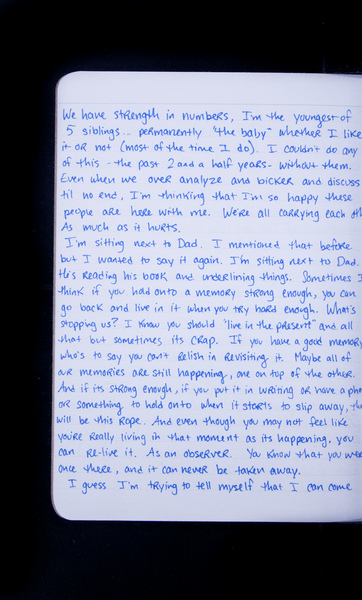 We have strength in numbers, I'm the youngest of
5 siblings... permanently "the baby" whether I like
it or not (most of the time I do). I couldn't do any
of this - the past 2 and a half years - without them.
Even when we over analyze and bicker and discuss
til no end, I'm thinking that I'm so happy these
people are here with me. We're all carrying each oth
As much as it hurts.
I'm sitting next to Dad. I mentioned that before
but I wanted to say it again. I'm sitting next to Dad.
He's reading his book and underlining things. Sometimes I
think if you hold onto a memory strong enough, you can
go back and live in it when you try hard enough. What's
stopping us? I know you should "live in the present" and all
that but sometimes its crap. If you have a good memory
who's to say you can't relish in revisiting it. Maybe all of
our memories are still happening, one on top of the other.
And if its strong enough, if you put it in writing or have a pho
or something to hold onto when it starts to slip away, the
will be this rope. And even though you may not feel like
you're really living in that moment as its happening, you
can re-live it. As an observer. You know that you wer
once there, and it can never be taken away.
I guess I'm trying to tell myself that I can come